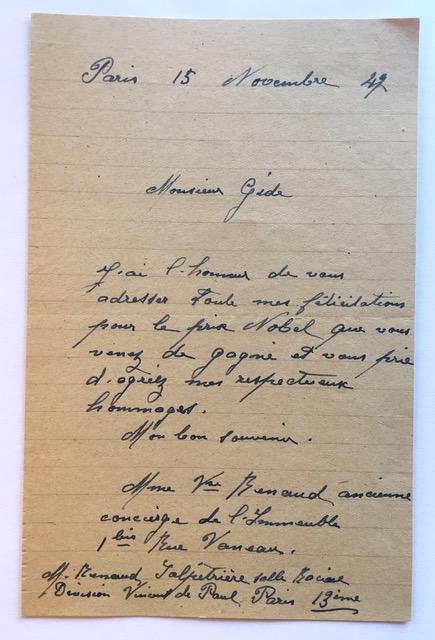 Paris 15 Novembre 47
Monsieur Gide
J'ai l'honneur de vous
adresser toute mes félicitations
pour le prix Nobel que vous
venez de gagné et vous prie
d'agriez mes respectueux
hommages.
Mon bon souvenir.
Mme Vve Renaud ancienne
concierge de l'Immeuble
1 bis Rue Vaneau.
M. Renaud Salpêtrière salle
Division Vincent de Paul Paris 13ème